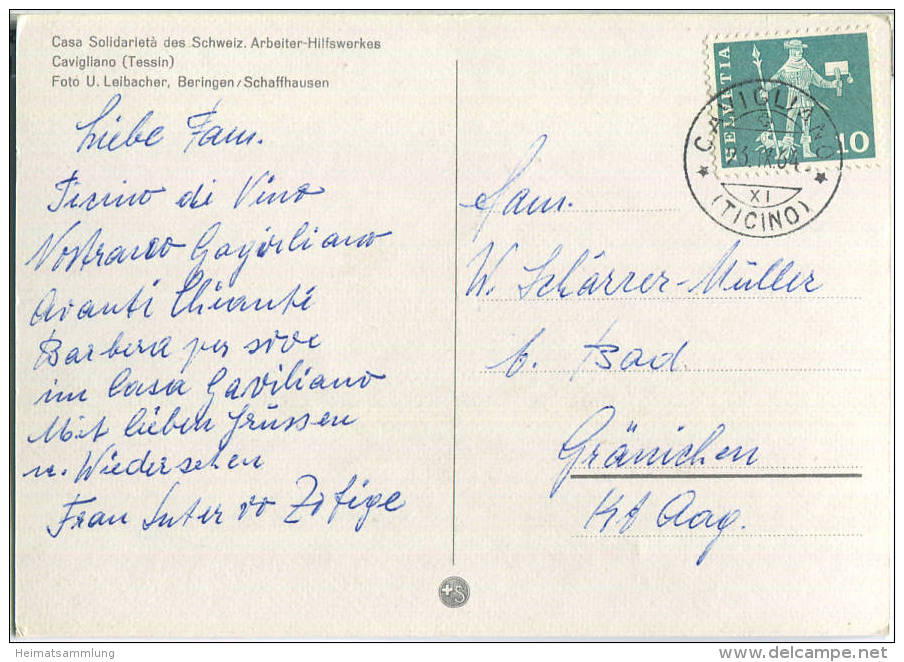 Casa Solidarietà des Schweiz. Arbeiter-Hilfswerkes
Cavigliano (Tessin)
Foto U. Leibacher, Beringen/Schaffhausen
Liebe Fam.
Ticino di Vino
Nostrano Gagirliano
Avanti Chianti
Barbera per
im Casa Gaviliano
Mit lieben Grüssen
u. Wiedersehen
Frau Suter vo Zofige
HELVETIA
10
CAVIGLIANO
23.IX.64
XI
(TICINO)
Fam.
W. Schärrer-Müller
b. Bad.
Gränichen
Kt Aag.
+S
Heimatsammlung
www.delcampe.net